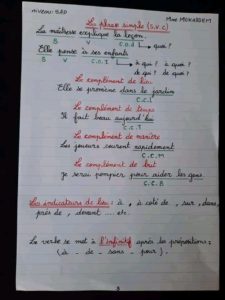 niveau: 5AP
Mme MOKADDEM
La phrase simple (S.V.C)
La maîtresse explique la leçon.
S V C.O.D quoi ?
Elle pense à ses enfants
S V C.O.I à qui ? à quoi ?
de qui ? de quoi ?
Le complément de lieu
Elle se promène dans le jardin
C.C.L
Le complément de temps
Il fait beau aujourd'hui
C.C.T
Le complément de manière
Les joueurs courent rapidement
C.C.M
Le complément de but
Je serai pompier pour aider les gens
C.C.B
Les indicateurs de lieu : à, à côté de, sur, dans,
près de, devant .... etc.
Le verbe se met à l'infinitif après les prépositions :
(à - de - sans - pour).